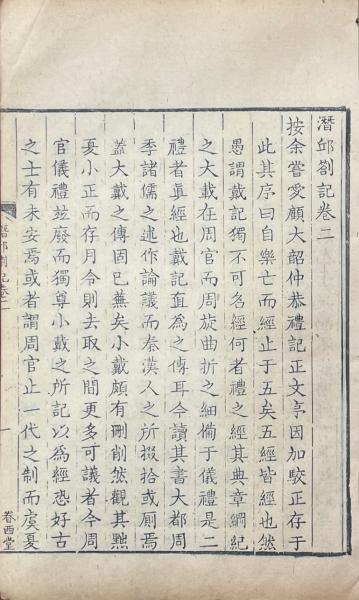 潛邱劄記卷二
按余嘗愛顧大韶仲恭禮記正文亭因加駮正存于
此其序曰自樂亡而經止于五矣五經皆經也然
愚謂戴記獨不可名經何者禮之經其典章綱紀
之大載在周官而周旋曲折之細備于儀禮是二
禮者眞經也戴記直為之傳耳今讀其書大都周
季諸儒之述作論議而秦漢人之所掇拾或厠焉
蓋大戴之傳固已無矣小戴頗有刪削然觀其黜
夏小正而存月令則去取之間更多可議者今周
官儀禮竝廢而獨尊小戴之所記以為經恐好古
之士有未安焉或者謂周官止一代之制而虞夏
潛邱劄記卷二
一
眷西堂